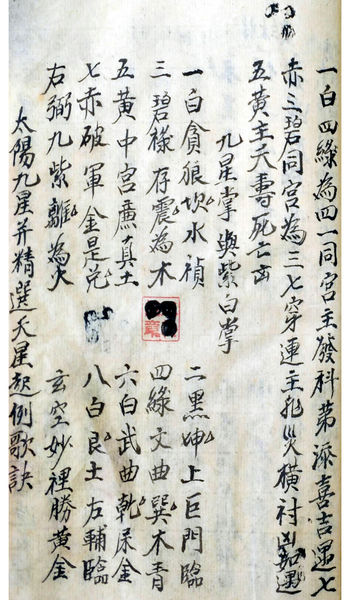 一白四綠為四一同宮主發科第添喜吉遇七
赤三碧同宮為三七穿連主㐬災橫討凶如遇
五黃主夭壽死亡凶
九星掌與紫白掌
一白貪狼坎水禎 二黑坤上巨門臨
三碧祿存震為木 四綠文曲巽木青
五黃中宮廉真土 六白武曲乾屎金
七赤破軍金是兌 八白艮土左輔臨
右弼九紫離為火 玄空妙裡勝黃金
太陽九星并精選天星起例歌訣